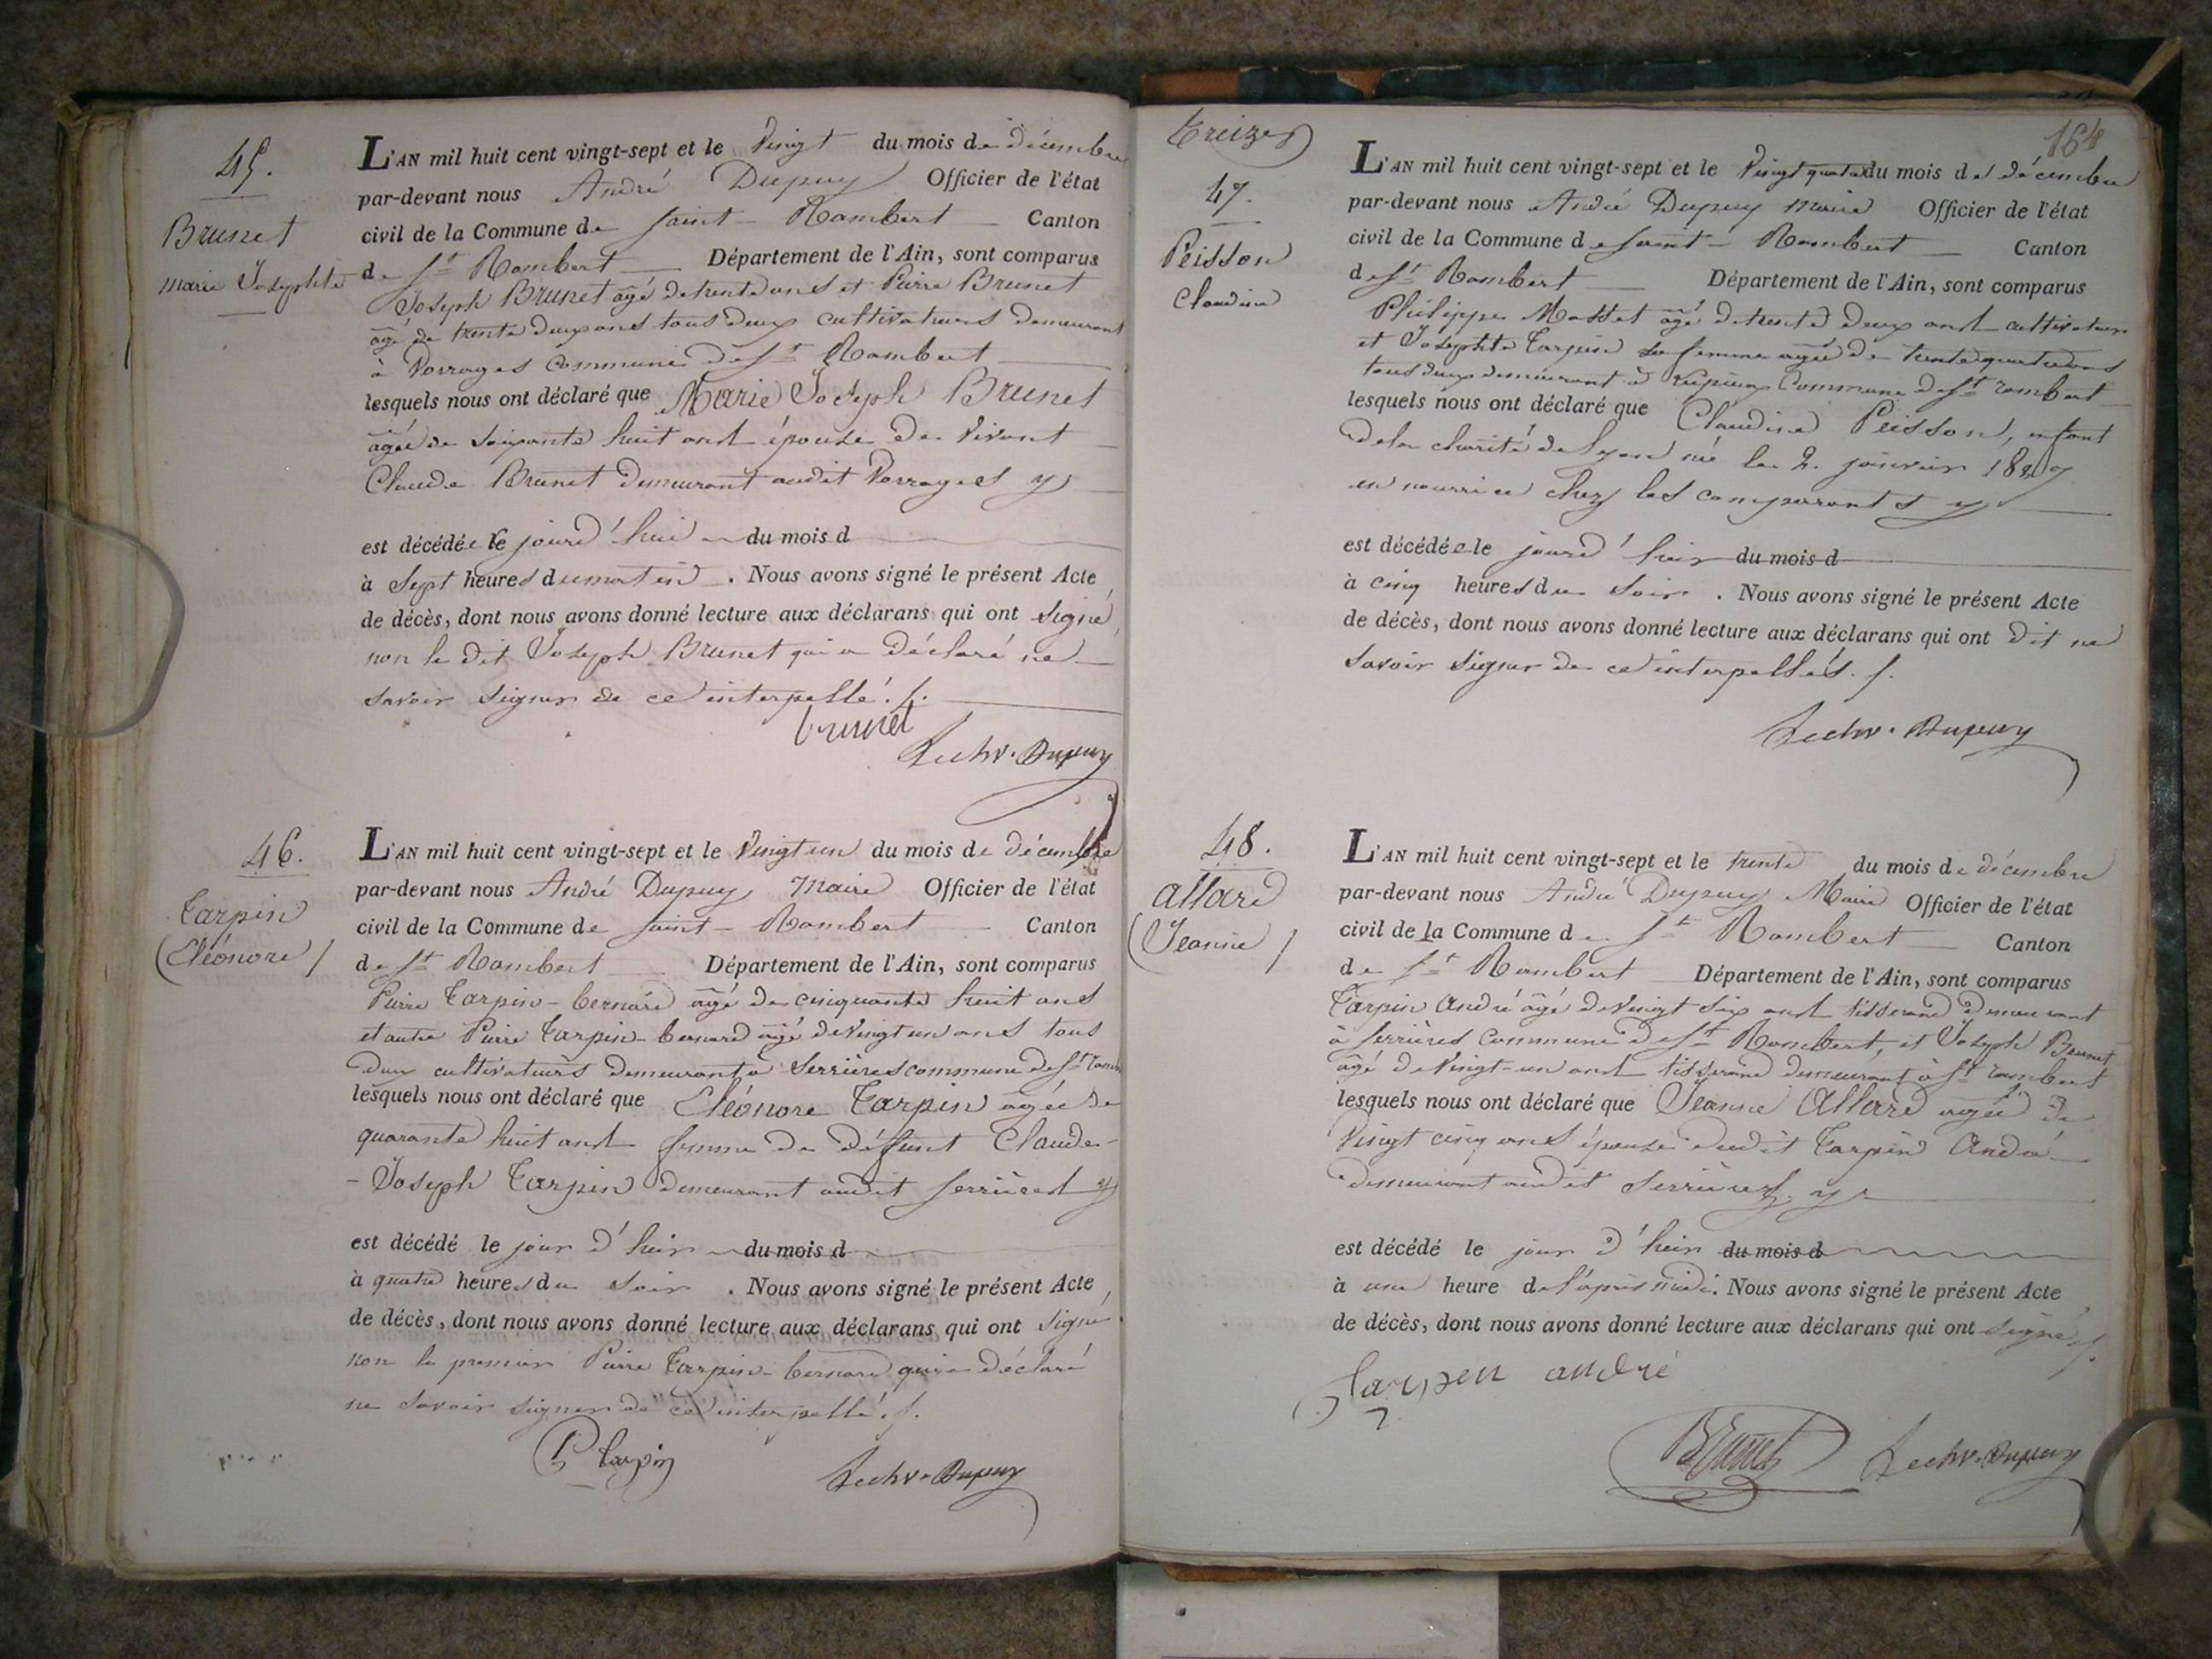 45.
Brunet
Marie Josephte
L'AN mil huit cent vingt-sept et le Vingt du mois de décembre
par-devant nous André Dupuy Officier de l'état
civil de la Commune de Saint-Rambert Canton
de St Rambert Département de l'Ain, sont comparus
Joseph Brunet âgé de trente ans et Pierre Brunet
âgé de trente deux ans tous deux cultivateurs demeurant
à Vorrages commune de St Rambert
lesquels nous ont déclaré que Marie Joseph Brunet
âgée de soixante huit ans épouse de vivant
Claude Brunet demeurant audit Vorrages y
est décédée le jourd'hui du mois d
à sept heures du matin. Nous avons signé le présent Acte
de décès, dont nous avons donné lecture aux déclarans qui ont signé,
non le dit Joseph Brunet qui a déclaré ne
savoir signer de ce interpellé.
brunet
Dupuy
46.
Tarpin
(Eléonore)
L'AN mil huit cent vingt-sept et le Vingt un du mois de décembre
par-devant nous André Dupuy Maire Officier de l'état
civil de la Commune de Saint-Rambert Canton
de St Rambert Département de l'Ain, sont comparus
Pierre Tarpin-bernard âgé de cinquante huit ans
et autre Pierre Tarpin-bernard âgé de Vingt un ans tous
deux cultivateurs demeurant à Serrières commune de St
lesquels nous ont déclaré que Eléonore Tarpin âgée de
quarante huit ans femme de déffunt Claude-
-Joseph Tarpin demeurant audit Serrières y
est décédé le jour d'hui du mois d
à quatre heures du soir. Nous avons signé le présent Acte,
de décès, dont nous avons donné lecture aux déclarans qui ont signé
non le premier Pierre Tarpin-bernard qui a déclaré
ne savoir signer de ce interpellé.
P tarpin
Dupuy
treize
164
47.
Peisson
Claudine
L'AN mil huit cent vingt-sept et le Vingt quatre du mois de décembre
par-devant nous André Dupuy Maire Officier de l'état
civil de la Commune de Saint-Rambert Canton
de St Rambert Département de l'Ain, sont comparus
Philippe Mosset âgé de trente deux ans cultivateur
et Josephte Tarpin sa femme agée de trente quatre ans
tous deux demeurant à Commune de St rambert
lesquels nous ont déclaré que Claudine Peisson, enfant
de la charité de Lyon née le 2. janvier 1827
en nourrice chez les comparants y
est décédée le jourd'hui du mois d
à cinq heures du soir. Nous avons signé le présent Acte
de décès, dont nous avons donné lecture aux déclarans qui ont dit ne
savoir signer de ce interpellés.
Dupuy
48.
allard
(Jeanne)
L'AN mil huit cent vingt-sept et le trente du mois de décembre
par-devant nous André Dupuy Maire Officier de l'état
civil de la Commune de St Rambert Canton
de St Rambert Département de l'Ain, sont comparus
Tarpin André âgé de Vingt six ans tisserand demeurant
à Serrières Commune de St Rambert, et Joseph Brunet
âgé de Vingt-un ans tisserand demeurant à St rambert
lesquels nous ont déclaré que Jeanne Allard agée de
Vingt cinq ans épouse dudit Tarpin André
demeurant audit Serrières, y
est décédé le jour d'hui du mois d
à une heure de l'après midi. Nous avons signé le présent Acte
de décès, dont nous avons donné lecture aux déclarans qui ont signé.
tarpen andré
Brunet
Dupuy